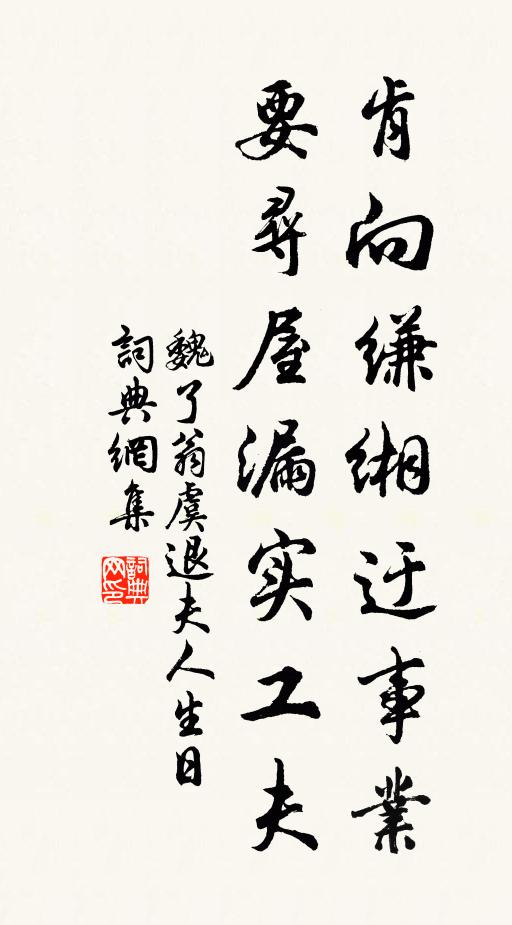 肯向缣缃迂事業
要尋屋漏实工夫
魏了翁虞退夫人生日
詞典網集
詞典网印